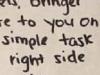 bringer
to you on
simple task
right side